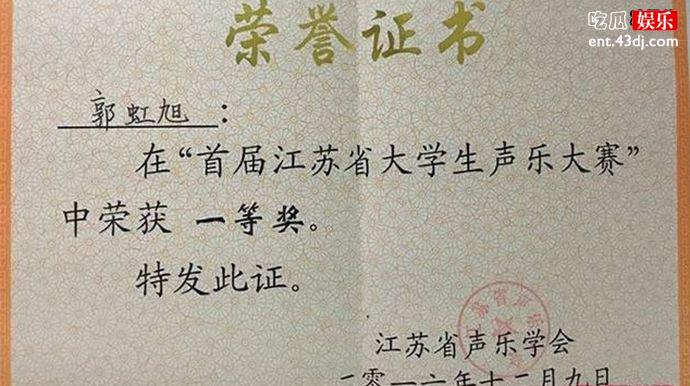 吃瓜娱乐
ent.43dj.com
荣誉证书
郭虹旭:
在“首届江苏省大学生声乐大赛”
中荣获 一等奖。
特发此证。
江苏省声乐
江苏省声乐学会
二零一六年十二月九日